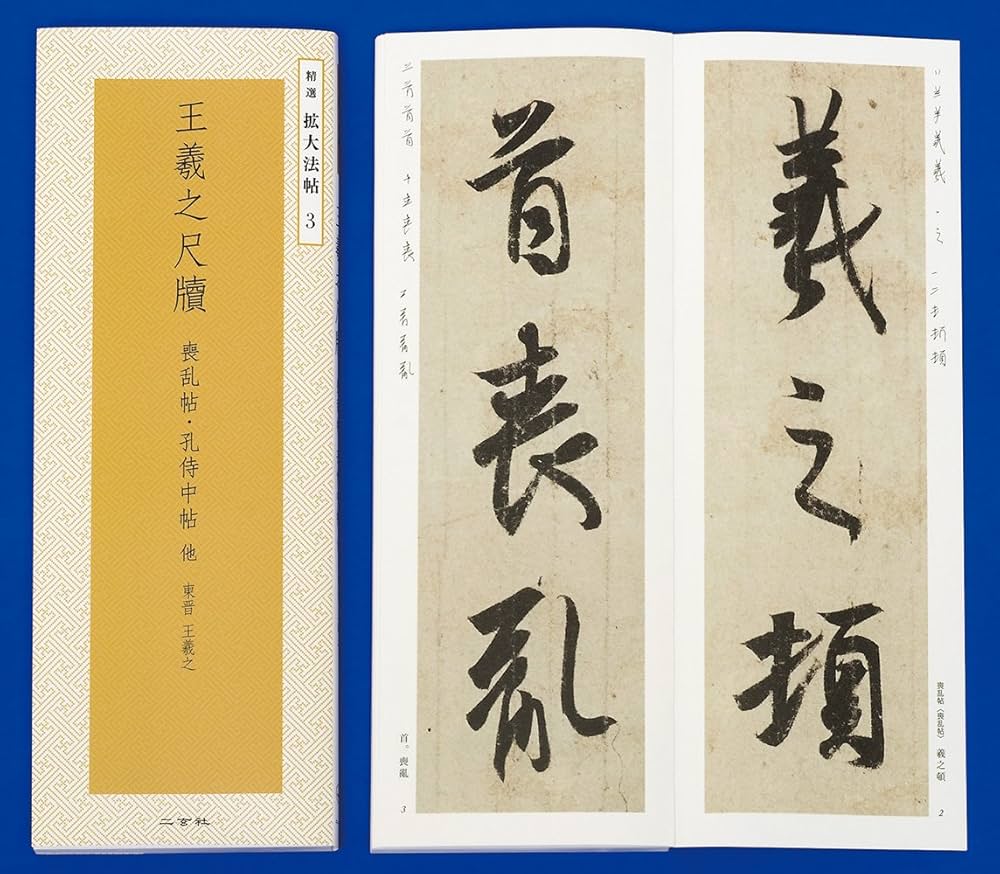 精選 拡大法帖 3
王羲之尺牘 喪乱帖・孔侍中帖 他 東晋 王羲之
二玄社
羲之頓
喪乱帖〈喪乱帖〉 羲之頓
2
首喪亂
首。喪亂
3